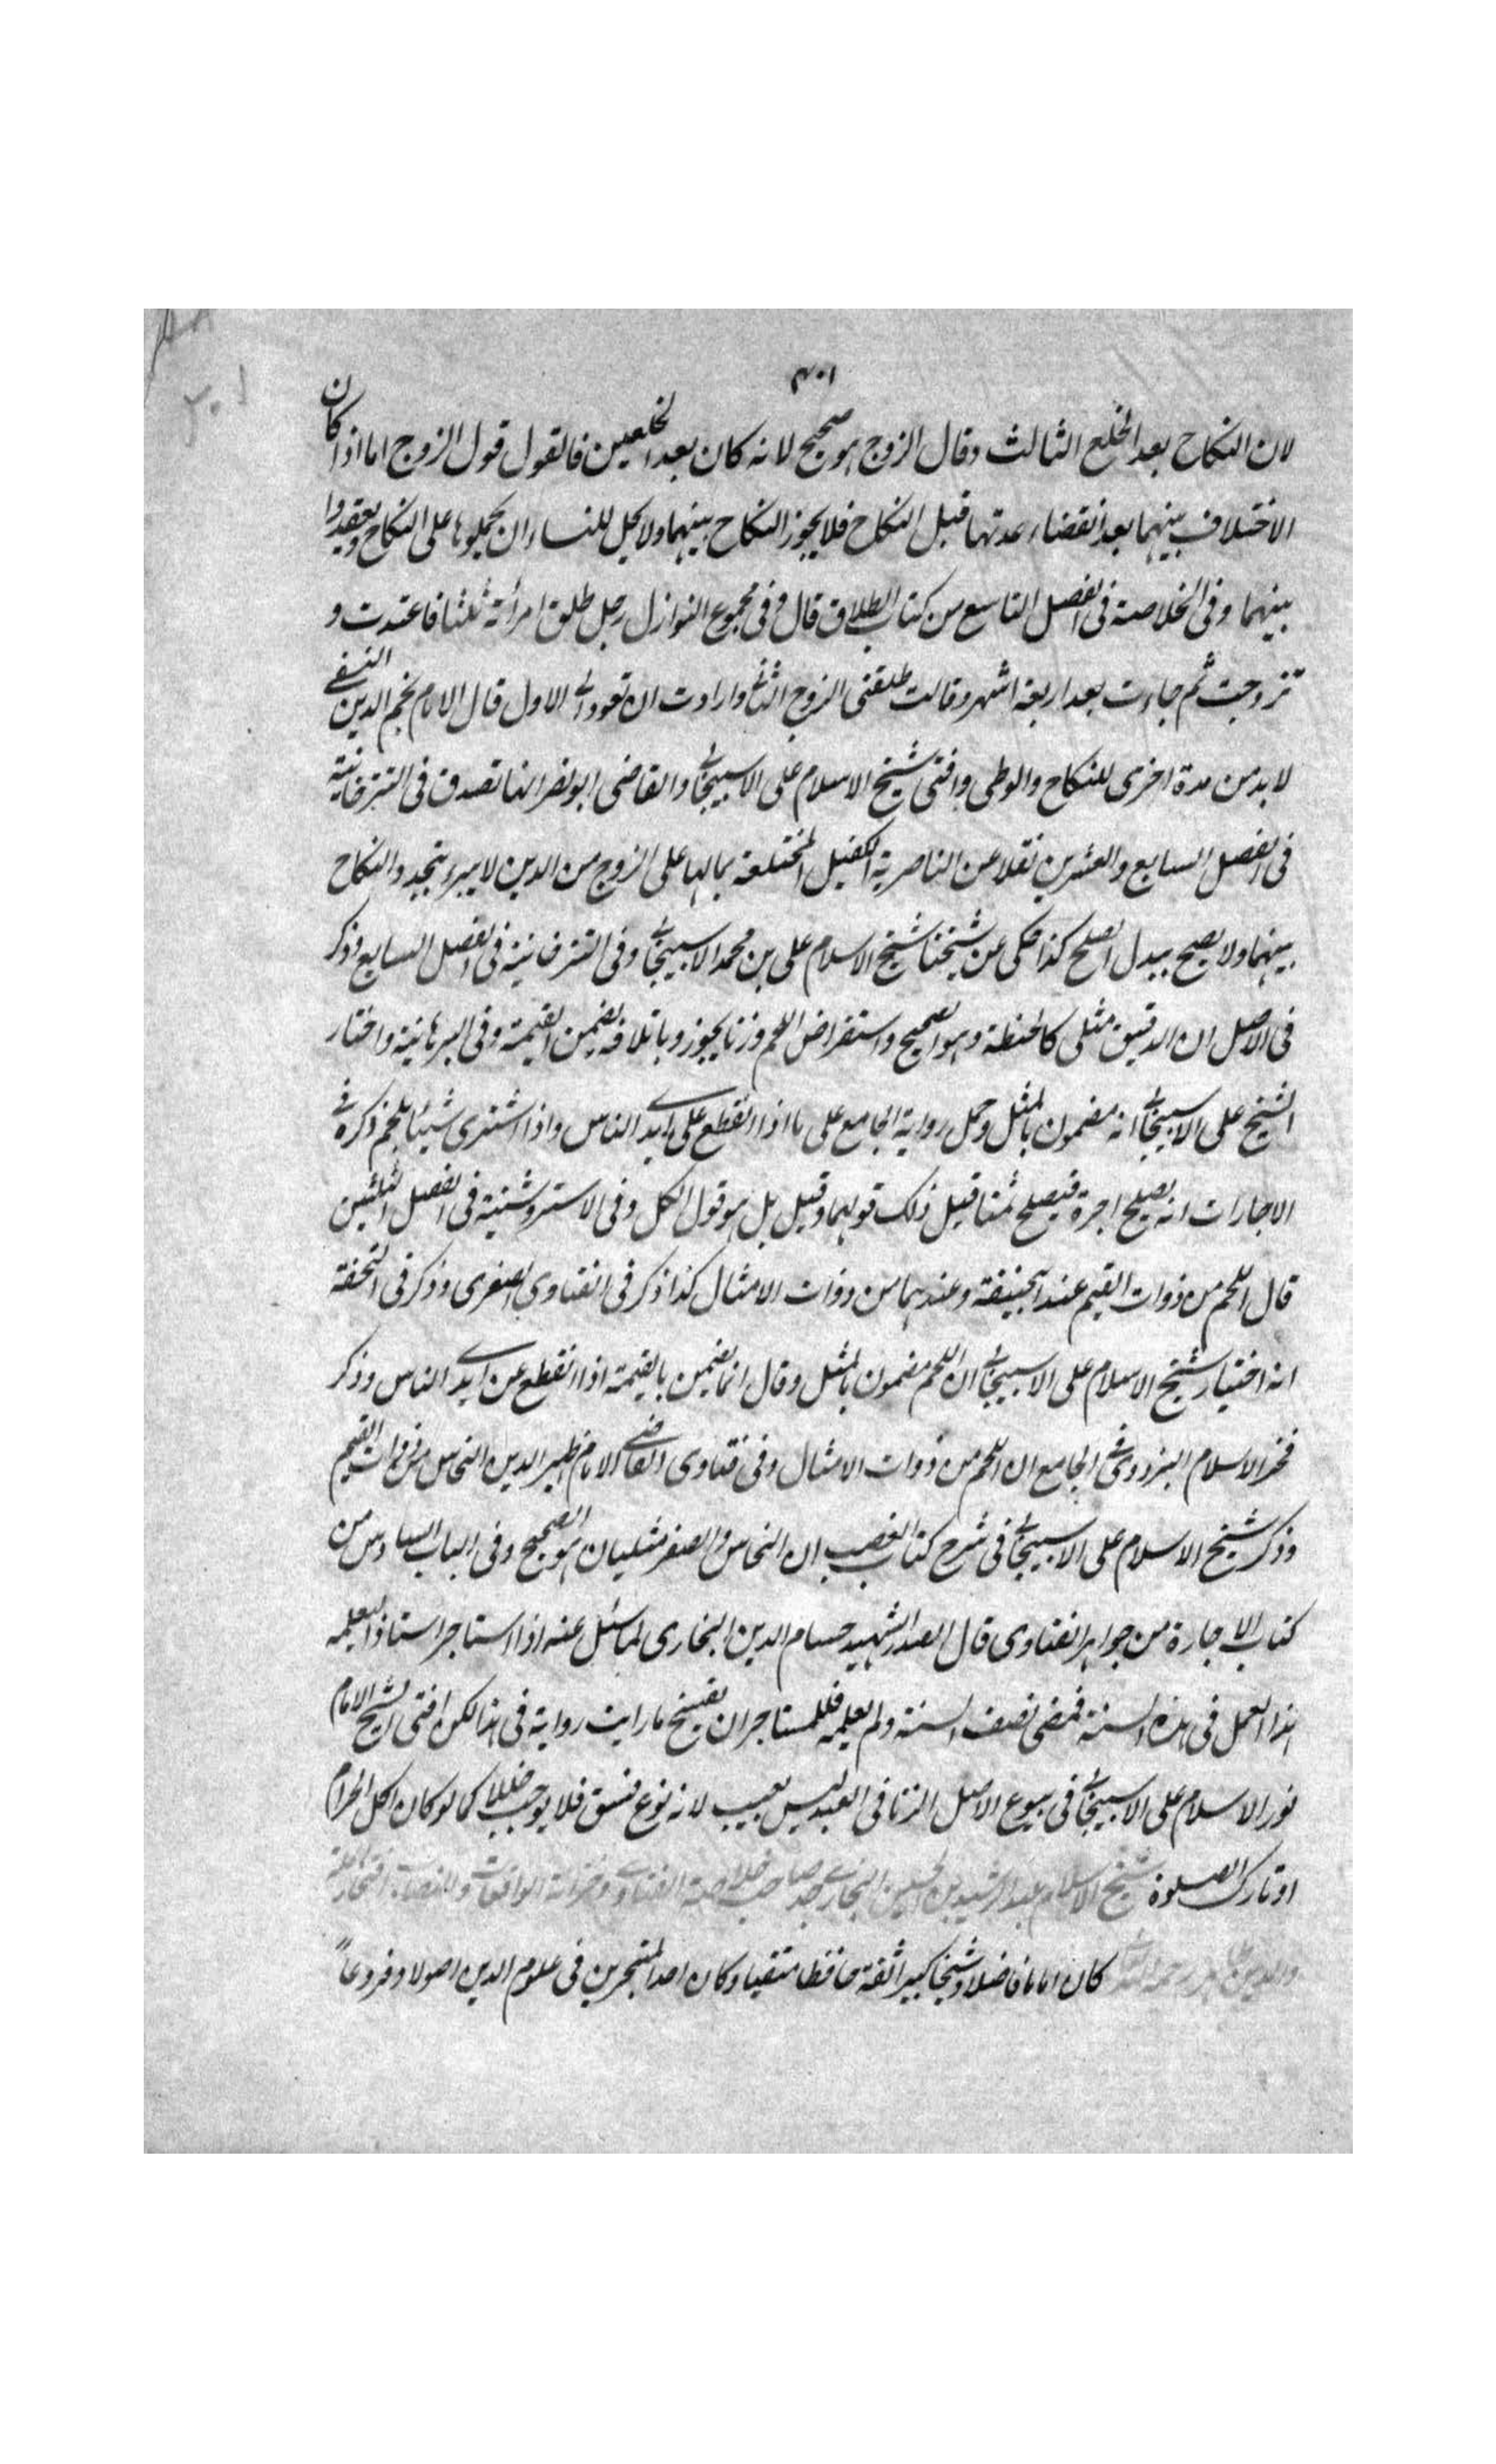 ٣٠١
لان النكاح بعد الخلع الثالث وقال الزوج هو صحيح لانه كان بعد الخلعين فالقول قول الزوج اما اذا كان
الاختلاف بينهما بعد انقضاء عدتها قبل النكاح فلا يجوز النكاح بينهما ولا يحل للنساء ان يحملوها على النكاح ويعقدوا
بينهما وفى الخلاصة فى الفصل التاسع من كتاب الطلاق قال وفى مجموع النوازل رجل طلق امرأته ثلثا فاعتدت و
تزوجت ثم جاءت بعد اربعة اشهر وقالت طلقنى الزوج الثانى وارادت ان تعود الى الاول قال الامام نجم الدين النسفى
لا بد من مدة اخرى للنكاح والوطى وافتى شيخ الاسلام على الاسبيجابى والقاضى ابو نصر انها تصدق فى التترخانية
فى الفصل السابع والعشرين نقلا عن الناصرية الكفيل المختلعة بمالها على الزوج من الدين لا يبرء بتجدد النكاح
بينهما ولا يصح ببدل الصلح كذا حكى عن شيخنا شيخ الاسلام على بن محمد الاسبيجابى وفى التترخانية فى الفصل السابع ذكر
فى الاصل ان الدقيق مثلى كالحنطة وهو الصحيح واستقراض اللحم وزنا يجوز وباتلافه يضمن القيمة وفى البرهانية واختار
الشيخ على الاسبيجابى انه مضمون بالمثل وحمل رواية الجامع على ما اذا انقطع على ايدى الناس واذا اشترى شيئا بلحم ذكر فى
الاجارات انه يصلح اجرة فيصلح ثمنا قيل ذلك قولهما وقيل بل هو قول الكل وفى الاستروشنية فى الفصل الثلثين
قال اللحم من ذوات القيم عند ابيحنيفة وعندهما من ذوات الامثال كذا ذكر فى الفتاوى الصغرى وذكر فى التحفة
انه اختيار شيخ الاسلام على الاسبيجابى ان اللحم مضمون بالمثل وقال انما يضمن بالقيمة اذا انقطع عن ايدى الناس وذكر
فخر الاسلام البزدوى فى الجامع ان اللحم من ذوات الامثال وفى فتاوى القاضى الامام ظهير الدين النحاس من ذوات القيم
وذكر شيخ الاسلام على الاسبيجابى فى شرح كتاب الغصب ان النحاس والصفر مثليان هو الصحيح وفى الباب السادس من
كتاب الاجارة من جواهر الفتاوى قال الصدر الشهيد حسام الدين البخارى لما سئل عنه اذا استاجر استاذا ليعلمه
هذا العمل فى هذه السنة فمضى نصف السنة ولم يعلمه فللمستاجر ان يفسخ ما رايت رواية فى هذا لكن افتى الشيخ الامام
نور الاسلام على الاسبيجابى فى بيوع الاصل الزنا فى العبد ليس بعيب لانه نوع فسق فلا يوجب خللا كما لو كان اكل الحرام
او تارك الصلوة شيخ الاسلام عبد الرشيد بن الحسين البخارى جد صاحب خلاصة الفتاوى وخزانة الواقعات والنصاب افتخار الملة
والدين طاهر رحمه الله كان اماما فاضلا وشيخا كبيرا ثقة حافظا متقيا وكان احد المتبحرين فى علوم الدين اصولا وفروعاً